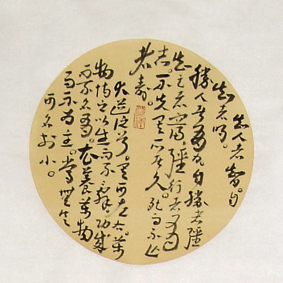 知人者智。自
知者明。
勝人者有力。自勝者強。
知足者富。強行者有
志。不失其所者久。死而不亡
者壽。
大道氾兮。其可左右。萬
物恃之以生而不辭。功成
而不名有。衣養萬物
而不為主。常無欲
可名於小。